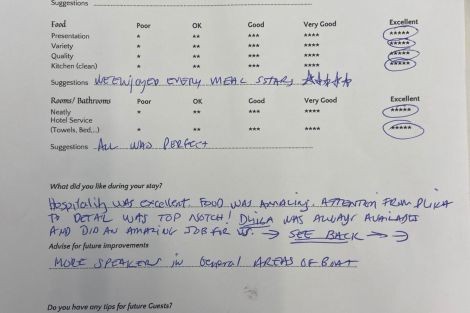 Suggestions
Food Poor OK Good Very Good Excellent
Presentation * ** *** **** *****
Variety * ** *** **** *****
Quality * ** *** **** *****
Kitchen (clean) * ** *** **** *****
Suggestions WE ENJOYED EVERY MEAL 5 STARS ★★★★★
Rooms/ Bathrooms Poor OK Good Very Good Excellent
Neatly * ** *** **** *****
Hotel Service
(Towels, Bed...) * ** *** **** *****
Suggestions ALL WAS PERFECT
What did you like during your stay?
Hospitality WAS EXCELLENT. FOOD WAS AMAZING. ATTENTION FROM
TO DETAIL WAS TOP NOTCH! WAS ALWAYS AVAILABLE
AND DID AN AMAZING JOB FOR US. → SEE BACK →
Advise for future improvements
MORE SPEAKERS in General AREAS OF BOAT
Do you have any tips for future Guests?